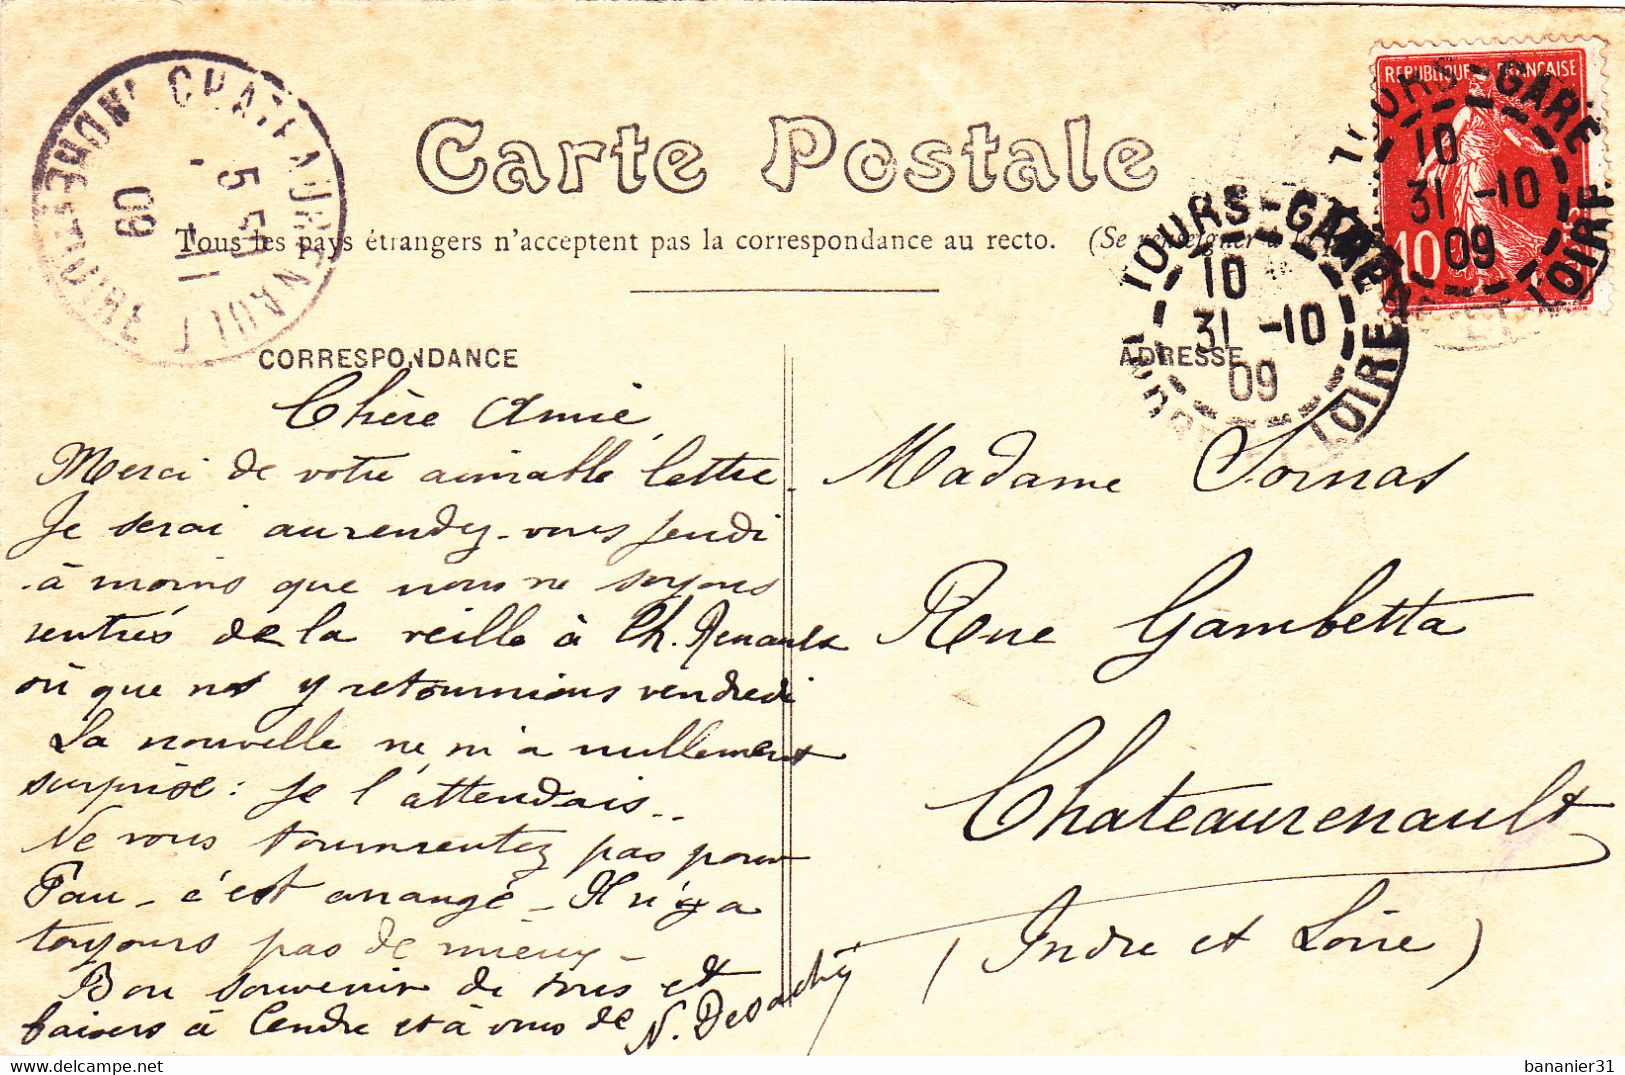 Carte Postale
Tous les pays étrangers n'acceptent pas la correspondance au recto. (Se renseigner à la
CORRESPONDANCE
ADRESSE
REPUBLIQUE FRANÇAISE
10
TOURS-GARE
10
31 -10
09
INDRE ET LOIRE
TOURS-GARE
10
31 -10
09
LOIRE
CHATEAURENAULT
5
1
09
Chère Amie,
Merci de votre aimable lettre.
Je serai au rendez-vous jeudi
à moins que nous ne soyons
rentrés de la veille à Ch. Renault
où que ns y retournions vendredi
La nouvelle ne m'a nullement
surprise : je l'attendais..
Ne vous tourmentez pas pour
Pau - c'est arrangé - Il n'y a
toujours pas de mieux -
Bon souvenir de tous et
baisers à et à vous de
Madame Sornas
Rue Gambetta
Chateaurenault
(Indre et Loire)
bananier31